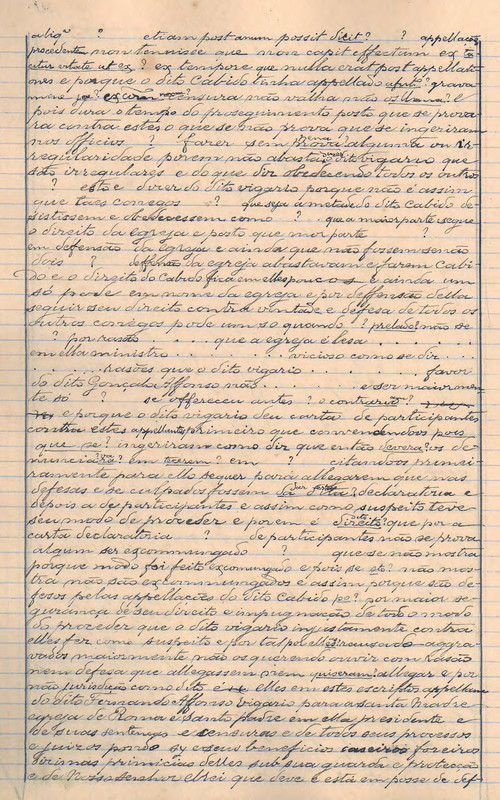 aliq ? etiam post anum possit dicit? ? appellacoes
procedentes non tennisse que non capit effectum ex
ex? ex tempore que nulla erat post appellati
ones e porque o dito Cabido tinha appellado grava
mene censura não valha não os ? E
pois dura o tempo do proseguimento posto que se prova
ra contra estes o que se não prova que se ingeriram
nos officios ? ? fazer sem prova alguma ou ir-
regularidade porem não abasta dito vigario que
são irregulares e do que dir obedecendo todos os outros
? esto e dizer do dito vigario porque não é assim
que taes conegos ? que seja a metade do dito Cabido de-
sistissem e obedecessem como ? que a maior parte segue
o direito da egreja e posto que mor parte ?
em defensão da egreja e ainda que não fossem senão
dois ? deffensão da egreja abastavam e faram Cabi-
do e o direito do Cabido fica em elles poucos e ainda um
só pode em nome da egreja e por deffensão della
seguir seu direito contra vontade e defesa de todos os
outros conegos pode um so quando ? prelado? não se
? por rasão . . . . que a egreja é lesa . . . . .
em ella ministro . . . . vicioso como se dir . . .
. . . . . rasões que o dito vigario . . . . . . favor
do dito Gonçalo Affonso não . . . . . e ser maiormen-
te só ? se offereceu antes? e contrario?
e porque o dito vigario deu carta de participantes
contra estes appellantes primeiro que convencendoos pois
que se? ingeriram como dir que então devera? os de-
nunciar em ? em ? citandoos primei-
ramente para ello sequer para allegarem suas
defesas e se culpados fossem declaratoria e
depois a de participantes e assim como suspeito teve
seu modo de proceder e porem é direito? que por a
carta declaratoria ? de participantes não se prova
algum ser excommungado ? que se não mostra
porque modo foi feito excomungado e pois se não mos-
tra não são excommungados e assim porque são de-
fesos pelas appellações do dito Cabido por maior se-
gurança de seu direito e impugnação de todo o modo
do proceder que o dito vigario injustamente contra
elles fez como suspeito e por tal por elles recusado aggra-
vados maiormente não os querendo ouvir com rasão
nem defesa que allegassem nem quizeram? allegar e por
não jurisdição como dito é elles em estes escriptos appellam
do dito Fernando Affonso vigario para a santa Madre
egreja de Roma e santo padre em ella presidente e
de suas sentenças e censuras e de todos seus processos
e juizos pondo sy e seus beneficios caseiros foreiros
dizimas primicias delles sub sua guarda e protecção
e de Nosso senhor elrei que deve e está em posse de def-